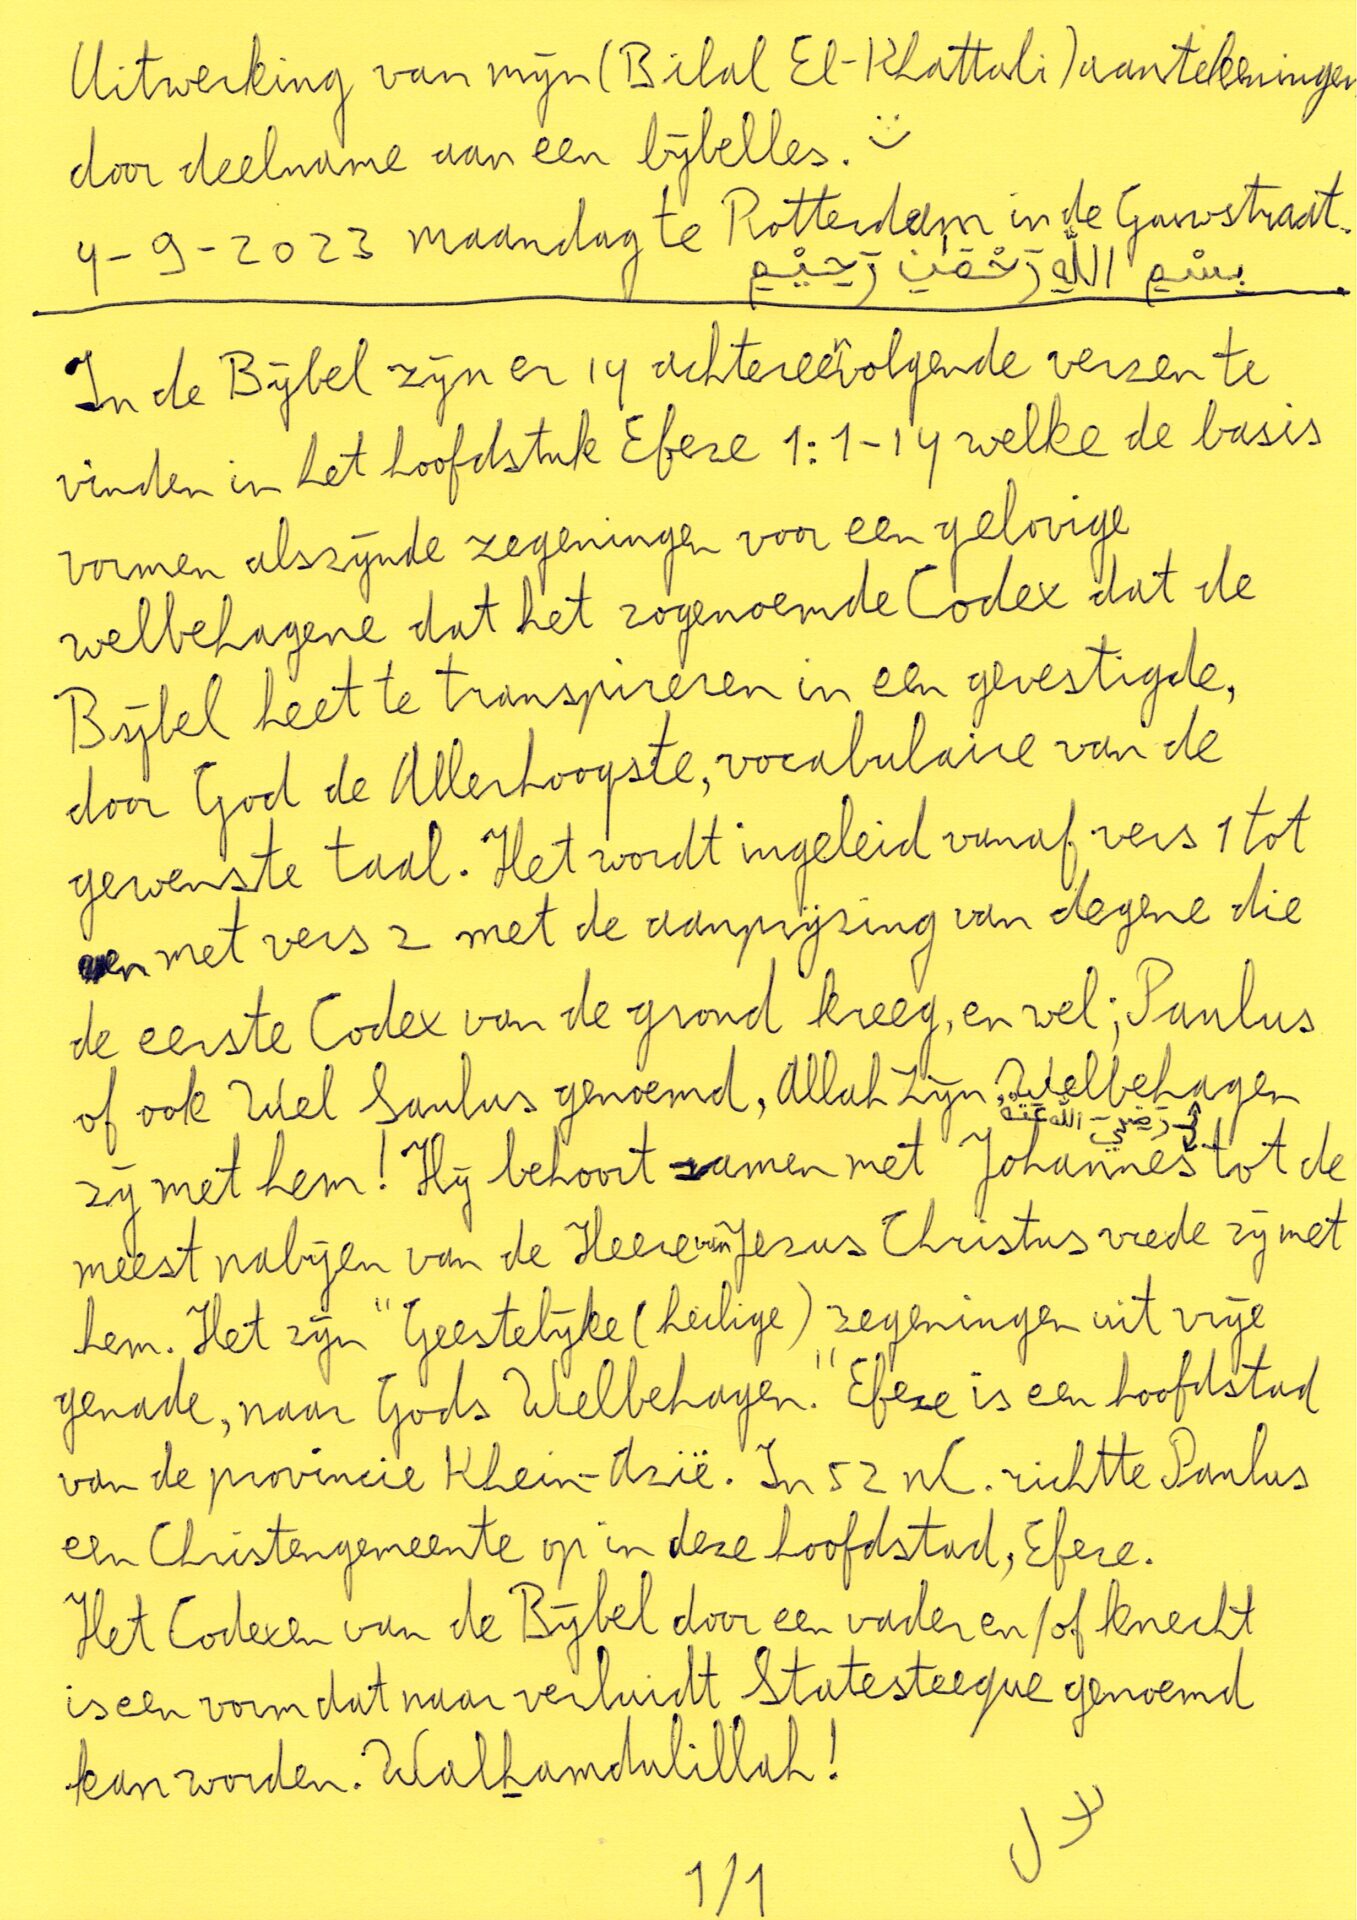 Uitwerking van mijn (Bilal El-Khattabi) aantekeningen
door deelname aan een bijbelles. :)
4-9-2023 maandag te Rotterdam in de Gouwstraat.
بِسْمِ اللَّهِ رَحْمَٰنِ رَحِيْمِ
In de Bijbel zijn er 14 achtereenvolgende verzen te
vinden in het hoofdstuk Efeze 1:1-14 welke de basis
vormen alszijnde zegeningen voor een gelovige
welbehagene dat het zogenoemde Codex dat de
Bijbel heet te transpireren in een gevestigde,
door God de Allerhoogste, vocabulaire van de
gewenste taal. Het wordt ingeleid vanaf vers 1 tot
en met vers 2 met de aanprijzing van degene die
de eerste Codex van de grond kreeg, en wel; Paulus
of ook Wel Saulus genoemd, Allah Zijn, Welbehagen
رَضِيَ اللَّهُ عَنْهُ
zij met hem! Hij behoort samen met Johannes tot de
meest nabijen van de Heere van Jezus Christus vrede zij met
hem. Het zijn "Geestelijke (heilige) zegeningen uit vrije
genade, naar Gods Welbehagen." Efeze is een hoofdstad
van de provincie Klein-Azië. In 52 nC. richtte Paulus
een Christengemeente op in deze hoofdstad, Efeze.
Het Codexen van de Bijbel door een vader en/of knecht
is een vorm dat naar verluidt Statesteeque genoemd
kan worden. Walhamdulillah!
بلال
1/1